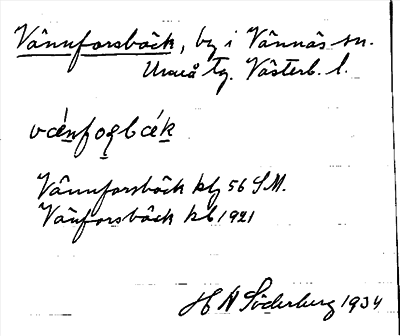 Vännforsbäck, by i Vännäs sn.
Umeå tg. Västerb. l.
vǽnfoꞛbæ̀k
Vännforsbäck kbf 56 S.M.
Vänforsbäck kb 1921
H A Söderberg 1934